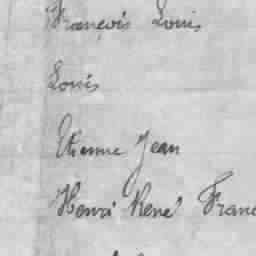 François Louis
Louis
Etienne Jean
Henri René Fran